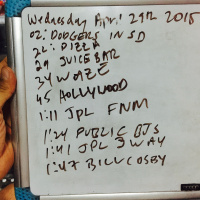 Wednesday April 29th 2015
02: DODGERS IN SD
22: PIZZA
29 JUICE BAR
34 WAZE
45 HOLLYWOOD
1:11 JPL FNM
1:24 PUBLIC DJS
1:41 JPL 3 WAY
1:47 BILL COSBY